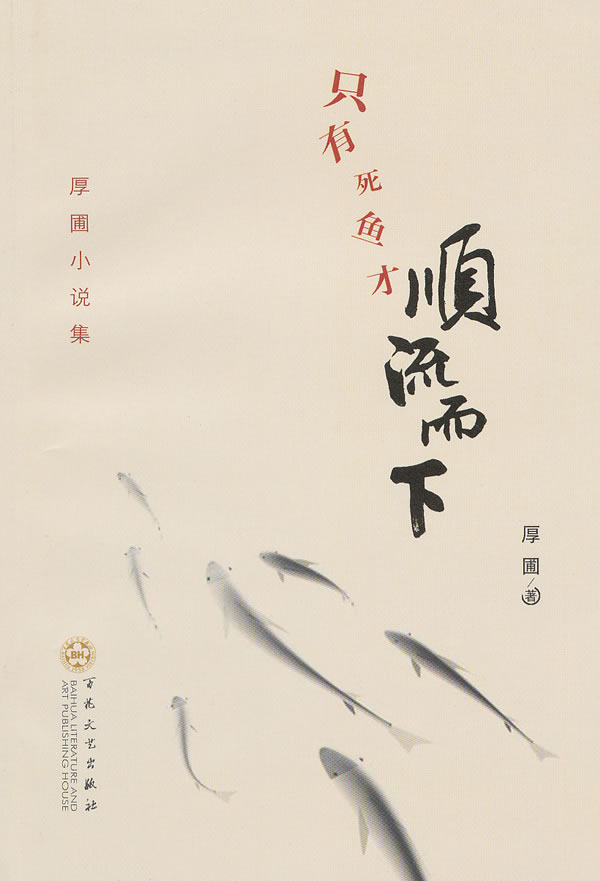 只有死鱼才
順流而下
厚圃小说集
厚圃/著
BH
百花文艺出版社
BAIHUA LITERATURE AND
ART PUBLISHING HOUSE